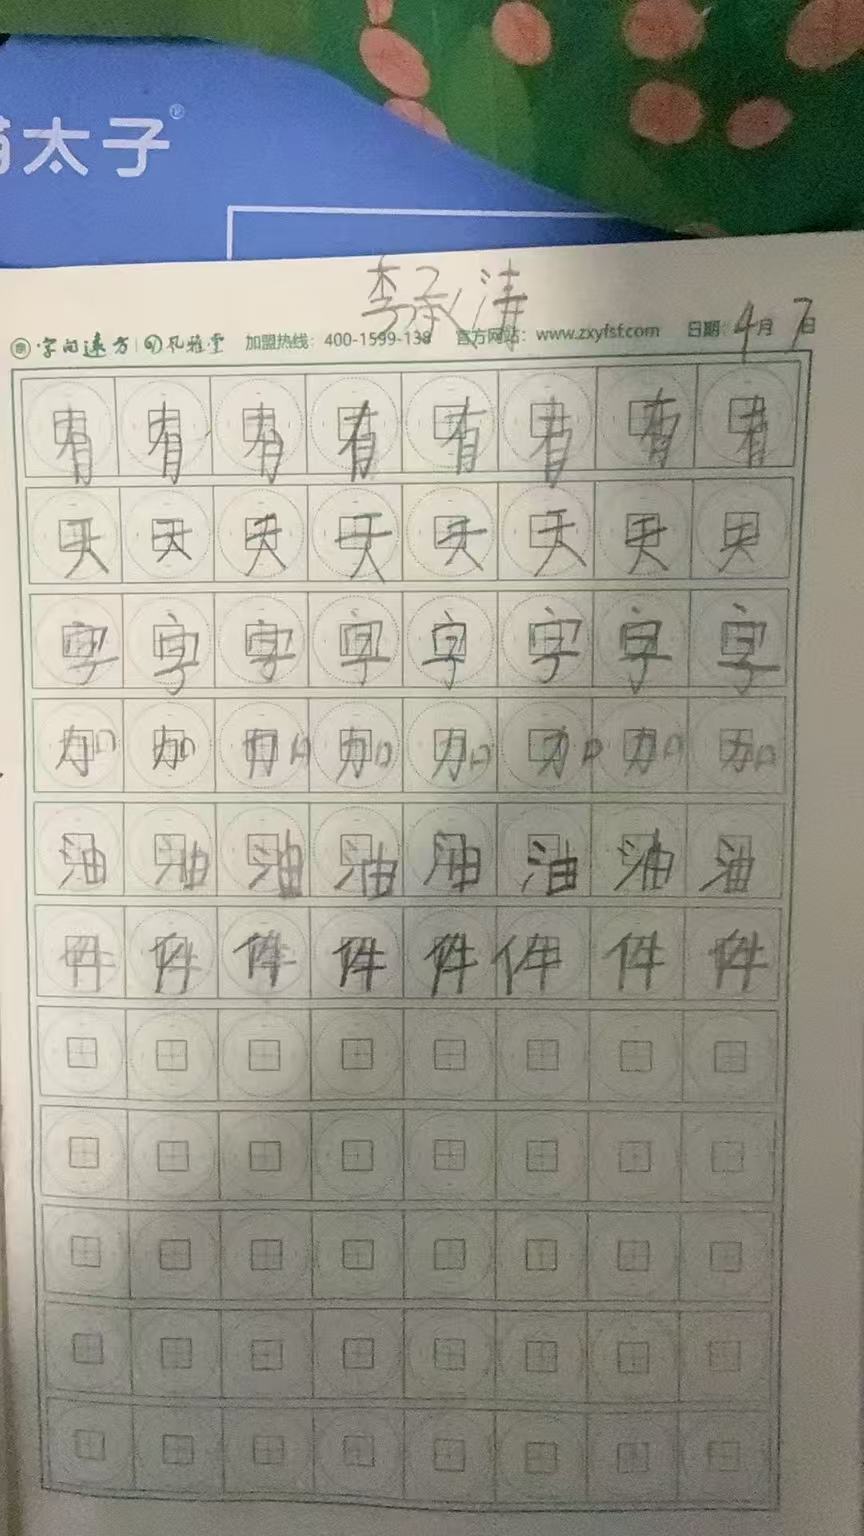 太子®
李承涛
字问远方 | 风雅堂 加盟热线：400-1599-138 官方网站：www.zxyfsf.com 日期：4月7日
有 有 有 有 有 有 有 有
天 天 天 天 天 天 天 天
字 字 字 字 字 字 字 字
加 加 加 加 加 加 加 加
油 油 油 油 油 油 油 油
件 件 件 件 件 件 件 件